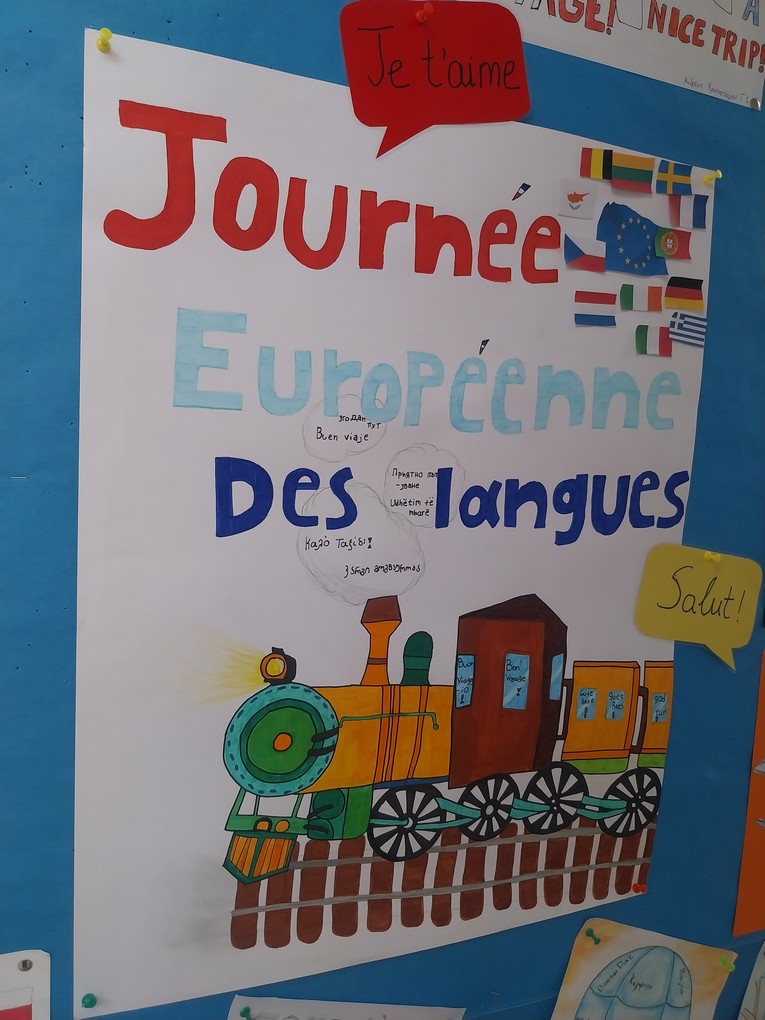 AGE!
NICE TRIP!
Je t'aime
Journée
Européenne
Des langues
Buen viaje
Приятно път
-уване
Udhëtim të
mbarë
Καλό Ταξίδι!
Salut!
Buon
Viagg
-io
!
Bon
Voyage
!
Gute
Reise
!